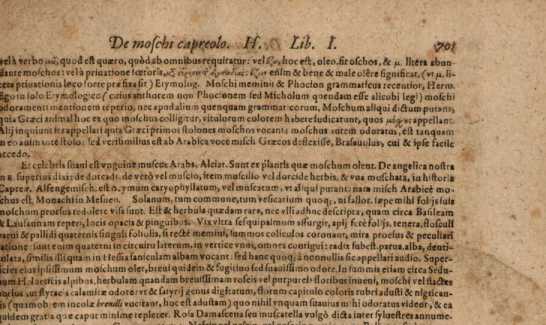 De moschi capreolo. H. Lib. I. 701
vel à verbo quod est quæro, quòd ab omnibus requiratur: vel hoc est, oleo. sit oschos, & μ. litera abun-
dante moschos: vel à priuatione fœtoris, enim & bene & malè olêre significat, (vt μ. li-
tera priuationis loco forte præfixa sit) Etymolog. Moschi meminit & Phocion grammaticus recentior, Hermo.
Ego in solo Etymologico (cuius authorem non Phocionem sed Micholum quendam esse alicubi legi) moschi
odoramenti mentionem reperio, nec apud alium quenquam grammaticorum. Moschum aliqui dictum putant,
quia Græci animal hoc ex quo moschus colligitur, vitulorum colorem habere iudicarunt, quos appellant.
Alij inquiunt sic appellari quia Græci primos stolones moschos vocant: moschus autem odoratus, est tanquam
stolones: sed verisimilius est ab Arabica voce misch Græcos detorsisse, Brasauolus, cui & ipse facile
accedo.
Et celebris suani est vnguine muscus Arabs, Alciat. Sunt ex plantis quæ moschum olent. De angelica nostra
superius dixi: de dorcadi. de vero vel muscio, item muscilio vel dorcide herbis, & vua moschata, in historia
Capreæ. Alfengemisch. est ozymum caryophyllatum, vel muscatum, vt aliqui putant: nam misch Arabicè mo-
schus est, Monachi in Mesuen. Solanum, tum commune, tum vesicarium quoque, ni fallor. sæpe mihi folijs sui
moschum prorsus redolere visa sunt. Est & herbula quædam rara, nec alias adhuc descripta, quam circa Basileam
& Lausannam reperi, locis opacis & pinguibus. Vix vltra sesquipalmum assurgit, api ferè folijs, tenera, flosculi
parui & pallidi quaterni singuli foliolis, si rectè memini, summos coliculos coronant, mira prorsus & peculiari
ratione: sunt enim quaterni in circuitu laterum, in vertice vnus, omnes contigui: radix subest parua, alba, denti-
culata, similis illi quam in Hessia saniculam albam vocant: sed hanc quoque à nonnullis sic appellari audio. Super-
ficies eius ipsissimum moschum olet, breui quidem & fugitiuo sed suauissimo odore. In summis etiam circa Sedu-
num Heluetiæ alpibus, herbulam quandam breuissimam roseis vel purpureis floribus inueni, moschi vel stactes
potius aut styracis calamitæ odore: vt & satyrij genus digitatum, florum capitulo coloris rubri adusti & nigrican-
tis (quamob rem incolæ brendli vocitant, hoc est adustam) quo nihil vnquam suauius mihi odoratus videor, & ea
quidem gratia quæ caput minime repleret. Rosa Damascena seu muscatella vulgò dicta inter syluestres annume-